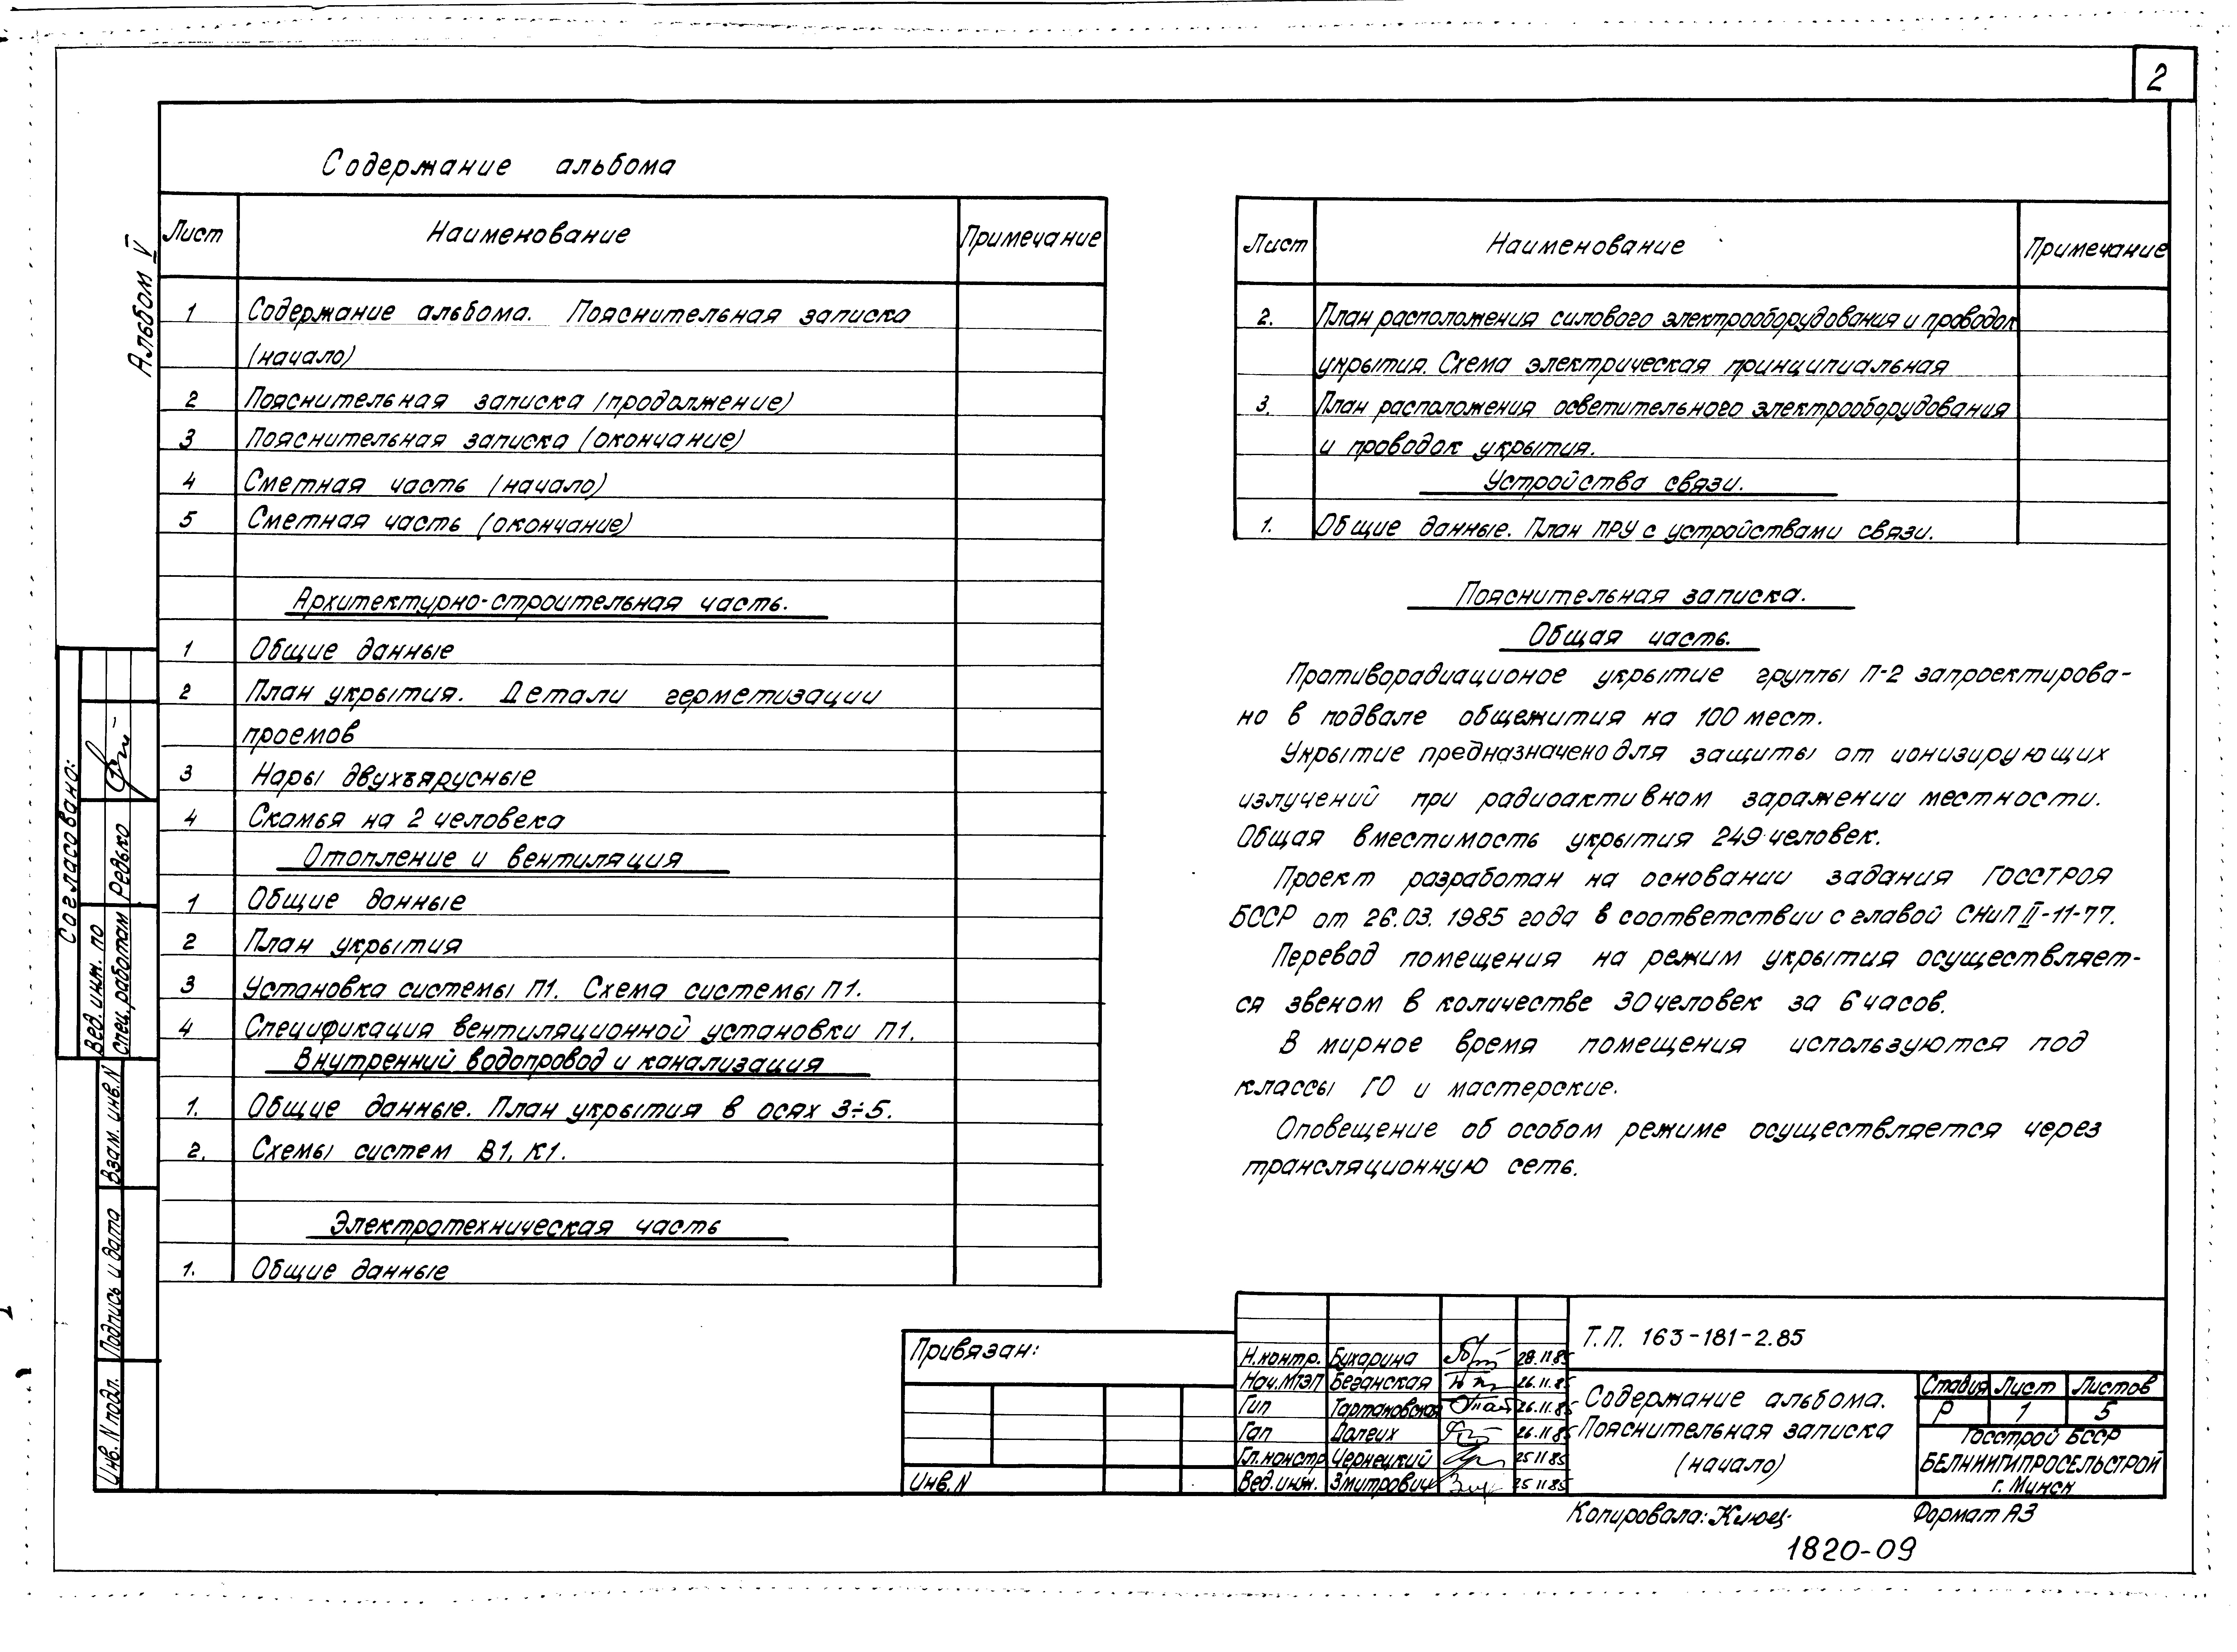 2
Альбом V
Содержание альбома
Лист Наименование Примечание
1 Содержание альбома. Пояснительная записка
(начало)
2 Пояснительная записка (продолжение)
3 Пояснительная записка (окончание)
4 Сметная часть (начало)
5 Сметная часть (окончание)
Архитектурно-строительная часть.
1 Общие данные
2 План укрытия. Детали герметизации
проемов
3 Нары двухъярусные
4 Скамья на 2 человека
Отопление и вентиляция
1 Общие данные
2 План укрытия
3 Установка системы П1. Схема системы П1.
4 Спецификация вентиляционной установки П1.
Внутренний водопровод и канализация
1. Общие данные. План укрытия в осях 3÷5.
2. Схемы систем В1, К1.
Электротехническая часть
1. Общие данные
Лист Наименование Примечание
2. План расположения силового электрооборудования и проводок
укрытия. Схема электрическая принципиальная
3. План расположения осветительного электрооборудования
и проводок укрытия.
Устройства связи.
1. Общие данные. План ПРУ с устройствами связи.
Пояснительная записка.
Общая часть.
Противорадиационое укрытие группы П-2 запроектирова-
но в подвале общежития на 100 мест.
Укрытие предназначено для защиты от ионизирующих
излучений при радиоактивном заражении местности.
Общая вместимость укрытия 249 человек.
Проект разработан на основании задания Госстроя
БССР от 26.03.1985 года в соответствии с главой СНиП II-11-77.
Перевод помещения на режим укрытия осуществляет-
ся звеном в количестве 30 человек за 6 часов.
В мирное время помещения используются под
классы ГО и мастерские.
Оповещение об особом режиме осуществляется через
трансляционную сеть.
Согласовано:
Вед. инж. по
спец. работам Редько
Взам. инв. N
Подпись и дата
Инв. N подл.
Привязан:
Инв. N
Н.контр. Бухарина 28.11.85
Нач.МТЭП Беганская 26.11.85
Гип Тартаковская 26.11.85
Гап Далеих 26.11.85
Гл.констр Чернецкий 25 11 85
Вед.инж. Змитрович 25 11 85
Т.П. 163-181-2.85
Содержание альбома.
Пояснительная записка
(начало)
Стадия Лист Листов
Р 1 5
Госстрой БССР
БЕЛНИИГИПРОСЕЛЬСТРОЙ
г. Минск
Копировала: Клюец
Формат А3
1820-09